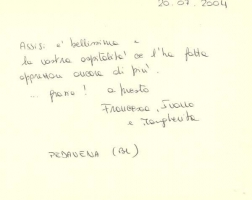 20.07.2004
Assisi è bellissima e
la vostra ospitalità ce l'ha fatta
apprezzare ancora di più.
... grazie! a presto
Francesca, Ivano
e Margherita
PEDAVENA (BL)